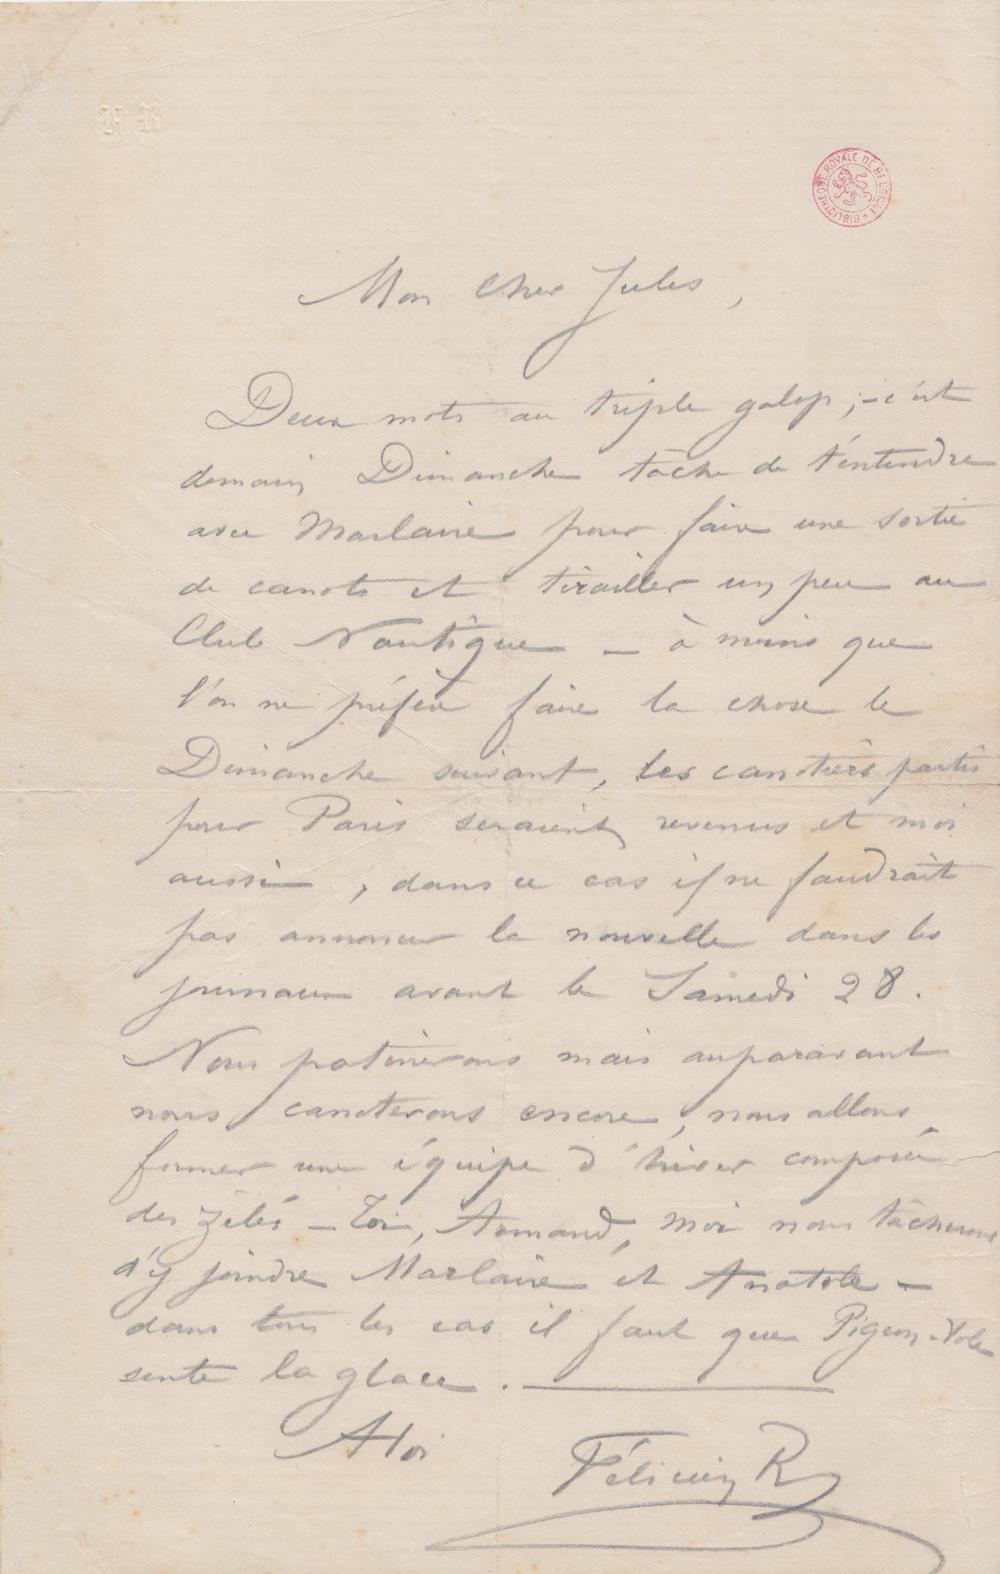 F R
BIBLIOTHEQUE ROYALE DE BELGIQUE
Mon cher Jules,
Deux mots au triple galop ; - c'est
demain Dimanche tâche de t'entendre
avec Marlaire pour faire une sortie
de canots et tirailler un peu au
Club Nautique — à moins que
l'on ne préfère faire la chose le
Dimanche suivant, les canotiers partis
pour Paris seraient revenus et moi
aussi, dans ce cas il ne faudrait
pas annoncer la nouvelle dans les
journaux avant le Samedi 28.
Nous patinerons mais auparavant
nous canoterons encore, nous allons
former une équipe d'hiver composée
des zélés — Toi, Armand, moi nous tâcherons
d'y joindre Marlaire et Anatole —
dans tous les cas il faut que Pigeon-Vole
sente la glace. —
A toi
Félicien R